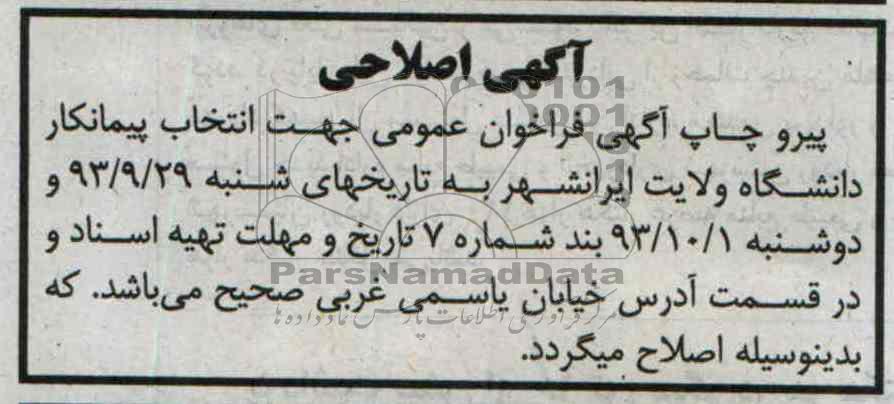 آگهی اصلاحی
پیرو چاپ آگهی فراخوان عمومی جهت انتخاب پیمانکار
دانشگاه ولایت ایرانشهر به تاریخهای شنبه ۹۳/۹/۲۹ و
دوشنبه ۹۳/۱۰/۱ بند شماره ۷ تاریخ و مهلت تهیه اسناد و
ParsNamadData
در قسمت آدرس خیابان یاسمی غربی صحیح می‌باشد. که
بدینوسیله اصلاح میگردد.